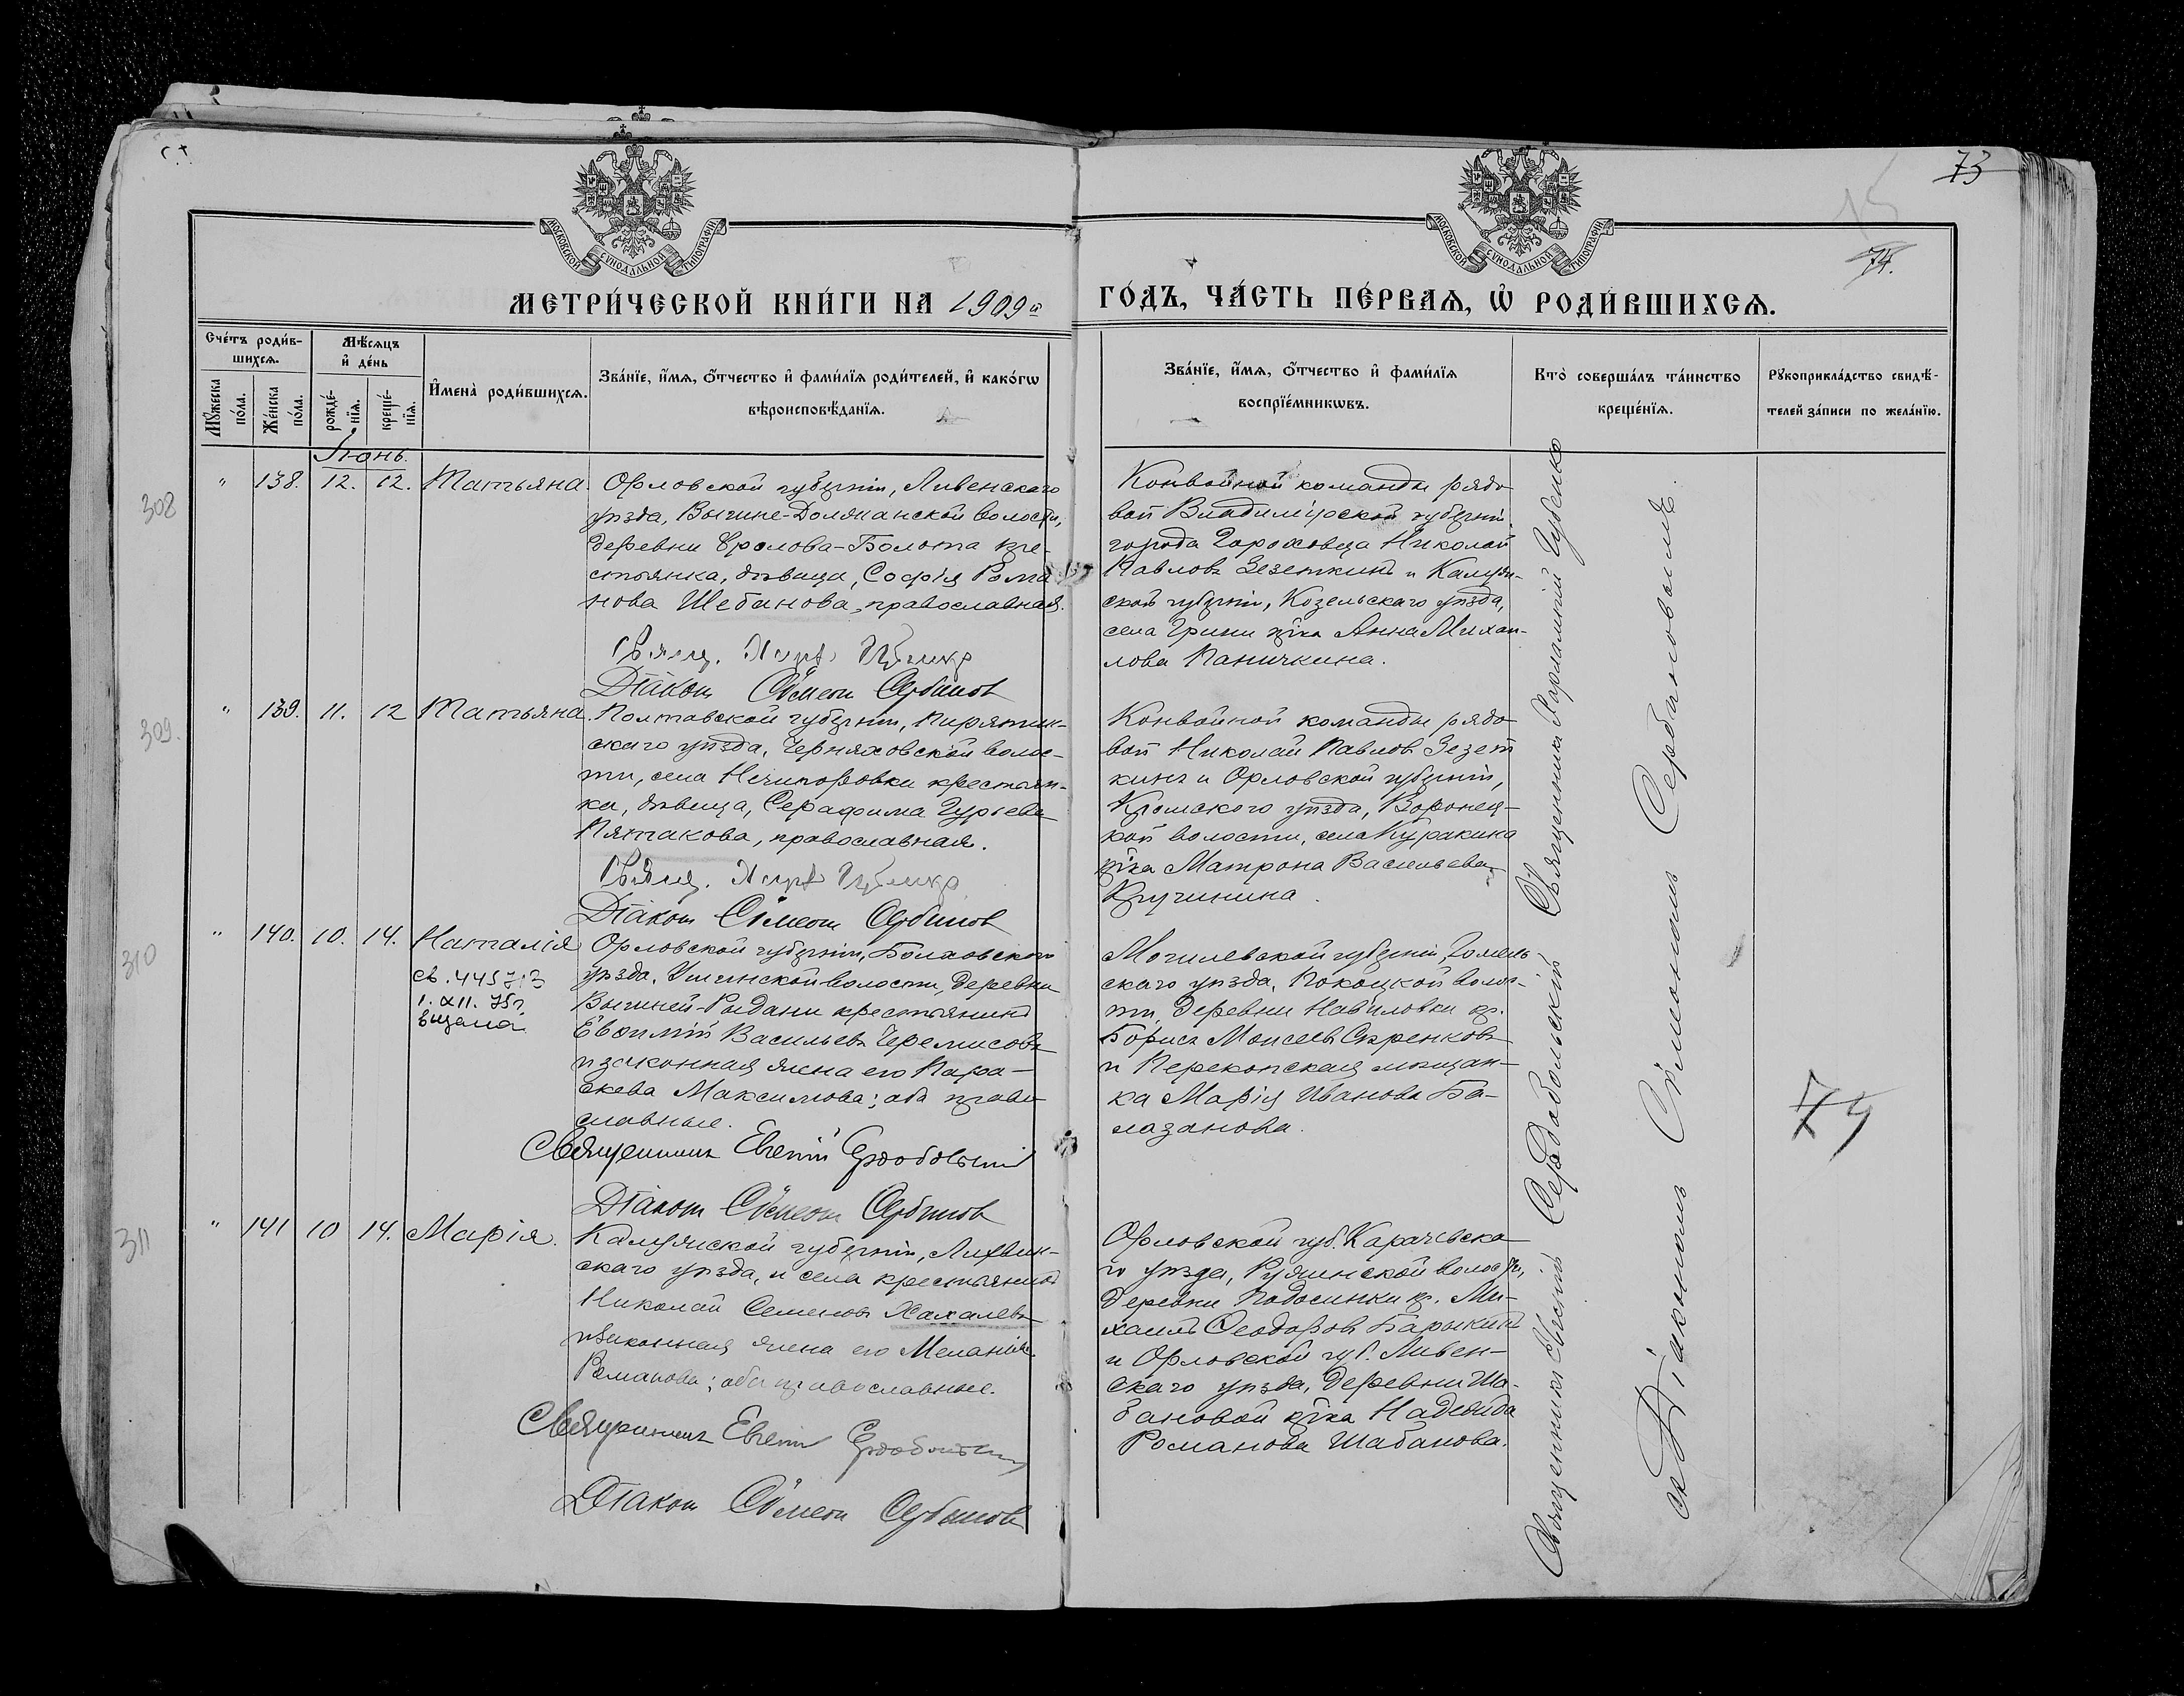 73
74.
МОСКОВСКОЙ СУНОДАЛЬНОЙ ТИПОГРАФІИ
МОСКОВСКОЙ СУНОДАЛЬНОЙ ТИПОГРАФІИ
МЕТРИ́ЧЕСКОЙ КНИ́ГИ НА 1909й ГО́ДЪ, ЧА́СТЬ ПЕ́РВАѦ, Ѽ РОДИ́ВШИХСѦ.
Сче́тъ роди́в-
шихсѧ.
Мꙋ́жеска по́ла.
Же́нска по́ла.
Мѣ́сѧцъ
и҆ де́нь
рожде́-
нїѧ.
креще́-
нїѧ.
И҆мена̀ роди́вшихсѧ.
Зва́нїе, и҆́мѧ, ѻ҆́тчество и҆ фами́лїѧ роди́телей, и҆ како́гѡ
вѣроисповѣ́данїѧ.
Зва́нїе, и҆́мѧ, ѻ҆́тчество и҆ фами́лїѧ
воспрїе́мникѡвъ.
Кто̀ соверша́лъ та́инство
креще́нїѧ.
Рꙋкоприкла́дство свидѣ́-
телей за́писи по жела́нїю.
Іюнь.
308
" 138. 12. 12. Татьяна.
Орловской губерніи, Ливенскаго
уѣзда, Вышне-Долянанской волости,
деревни Фролова-Болота кре-
стьянка, дѣвица, Софія Рома
нова Шебанова, православная.
Діаконъ Сѵмеонъ Сербиновъ
Конвойной команды рядо
вой Владимірской губерніи
города Гороховца Николай
Павловъ Зезеткинъ и Калуж-
ской губерніи, Козельскаго уѣзда,
села Грини кр҃ка Анна Михаи-
лова Паничкина.
309.
" 139. 11. 12 Татьяна
Полтавской губерніи, Пирятин-
скаго уѣзда, Черняховской волос-
ти, села Нечипоровки крестьян-
ка, дѣвица, Серафима Гурьева
Пятакова, православная.
Діаконъ Сѵмеонъ Сербиновъ
Конвойной команды рядо
вой Николай Павловъ Зезет
кинъ и Орловской губерніи,
Кромского уѣзда, Воронец-
кой волости, села Куракина
кр҃ка Матрона Васильева
Кручинина.
310
" 140. 10. 14. Наталія
св. 445713
1. XII. 75г.
выдана
Орловской губерніи, Болховского
уѣзда, деревни
крестьянинъ
Евѳимій Васильевъ Черемисовъ
и законная жена его Пара-
скева Максимова; оба право
славные.
Священникъ Евгеній Сердобольскій
Діаконъ Сѵмеонъ Сербиновъ
Могилевской губерніи, Гомель-
скаго уѣзда, Покоцкой волос-
ти, деревни Навиловки кр.
Борисъ Моисеевъ Сѣренковъ
и Перекопская мѣщан-
ка Марія Иванова Ба-
лазанова.
311
" 141 10 14. Марія.
Калужской губерніи, Лихвин-
скаго уѣзда, и села крестьянинъ
Николай Семеновъ Хахалевъ
и законная жена его Меланія
Романова; оба православные.
Священникъ Евгеній Сердобольскій
Діаконъ Сѵмеонъ Сербиновъ
Орловской губ. Карачевска
го уѣзда, волости,
деревни Подосинки кр. Ми-
хаилъ Ѳеодоровъ Барыкинъ
и Орловской губ. Ливен-
скаго уѣзда, деревни Ша-
бановой кр҃ка Надежда
Романова Шабанова.
Священникъ Евгеній Сердобольскій
Священникъ Харлампій Губенко
съ Діакономъ Сѵмеономъ Сербиновымъ.
74